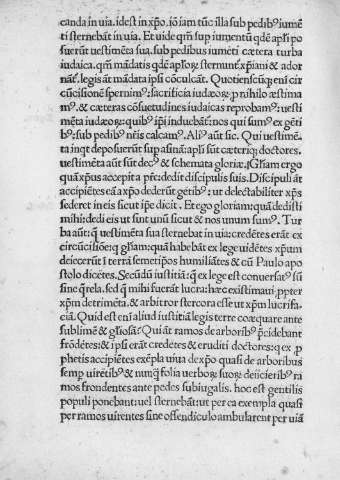 canda in uia. idest in xp̄o. iō iam tūc illa sub pedibꝰ iumē
ti sternebāt in uia. Et uide qm̄ sup iumentū qdē apl̄i po
suerūt uestimēta sua. sub pedibus iumēti cætera turba
iudaica. qm̄ mādatis qdē apl̄oꝝ: & ornant̄ xp̄iani & ador
nāt̄. legis āt mādata ipsi cōculcāt. Quotienscūꝙ eni cir
cūcisionē spernimꝰ: sacrificia iudæoꝝ: ꝓ nihilo æstima
mꝰ. & cæteras cōsuetudines iudaicas reprobamꝰ: uesti
mēta iudæoꝝ: quibꝰ ipi induebāt̄: nos qui sumꝰ ex gēti
bꝰ: sub pedibꝰ nr̄is calcamꝰ. Aliꝰ aūt sic. Qui uestimē
ta inqt depoſuerūt sup aſinā: apl̄i sūt cæteriqꝫ doctores.
uestimēta aūt sūt decꝰ & schemata gloriæ. Gl̄iam ergo
quā xpūs accepit a pr̄e: dedit discipulis suis. Discipuli āt
accipiētes eā a xp̄o dederūt gētibꝰ: ut delectabiliter xp̄s
sederet in eis sicut ip̄e dicit. Et ego gloriam: quā dedisti
mihi: dedi eis ut sint unū sicut & nos unum sumꝰ. Tur
ba aūt: q̄ uestimēta sua sternebat in uia: credētes erāt ex
circūcisiōe: q̄ gl̄iam: quā habebāt ex lege uidētes xp̄um
deiecerūt ī terrā semetipos humiliātes & cū Paulo apo
stolo dicētes. Secūdū iustitiā: q̄ ex lege est conuersatꝰ sū
sine q̄rela. sed q̄ mihi fuerāt lucra: hæc existimaui ꝓpter
xp̄m detrimēta. & arbitror stercora esse ut xp̄m lucrifa-
ciā. Quid est eni aliud iustitiā legis terræ coæquare ante
sublimē & gl̄iosā: Qui āt ramos de arboribꝰ p̄cidebant
frōdētes: & ipsi erāt credētes & eruditi doctores: q̄ ex ꝓ
phetis accipiētes exēpla uiua de xp̄o quasi de arboribus
semp uirētibꝰ & nunꝙ̄ folia uerboꝝ suoꝝ deiicientibꝰ ra
mos frondentes ante pedes subiugalis. hoc est gentilis
populi ponebant: uel sternebāt: ut per ea exempla quasi
per ramos uirentes sine offendiculo ambularent per uiā